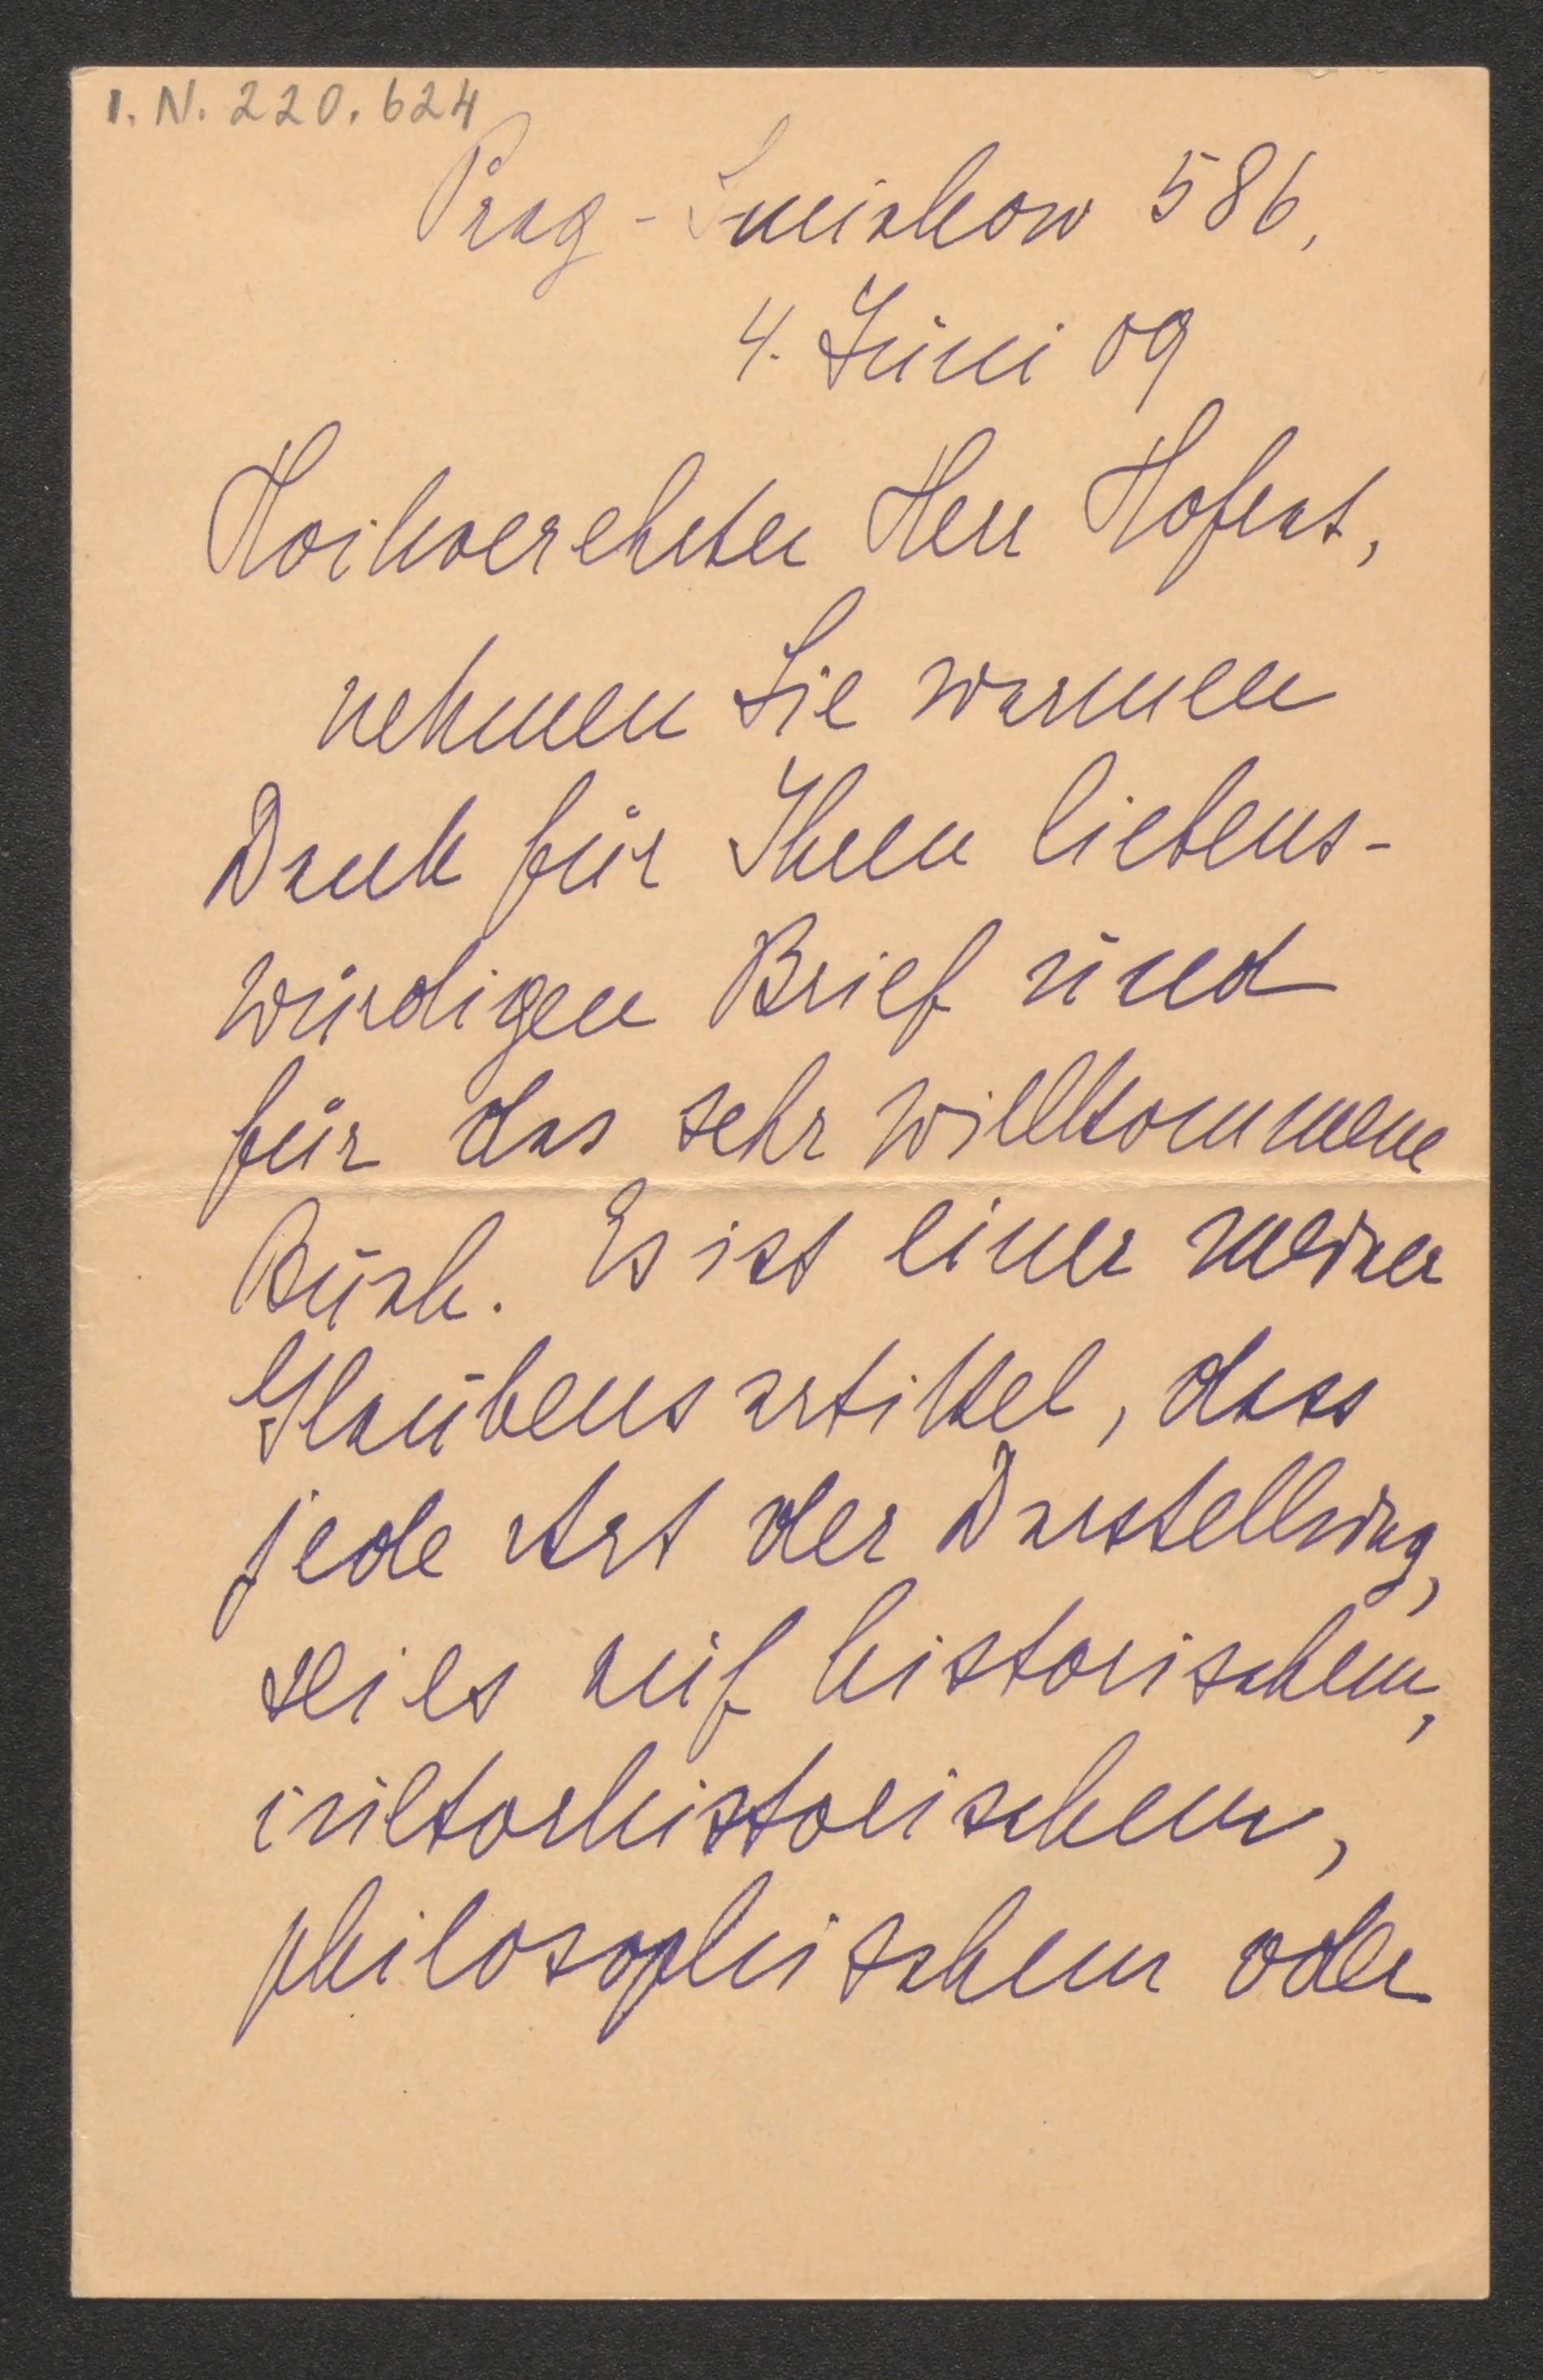 I. N. 220.624
Prag - Smichow 586,
4. Juni 09
Hochverehrter Herr Hofrat,
nehmen Sie warmen
Dank für Ihren liebens-
würdigen Brief und
für das sehr willkommene
Buch. Es ist einer meiner
Glaubensartikel, dass
jede Art der Darstellung,
sei es auf historischem,
culturhistorischem,
philosophischem oder